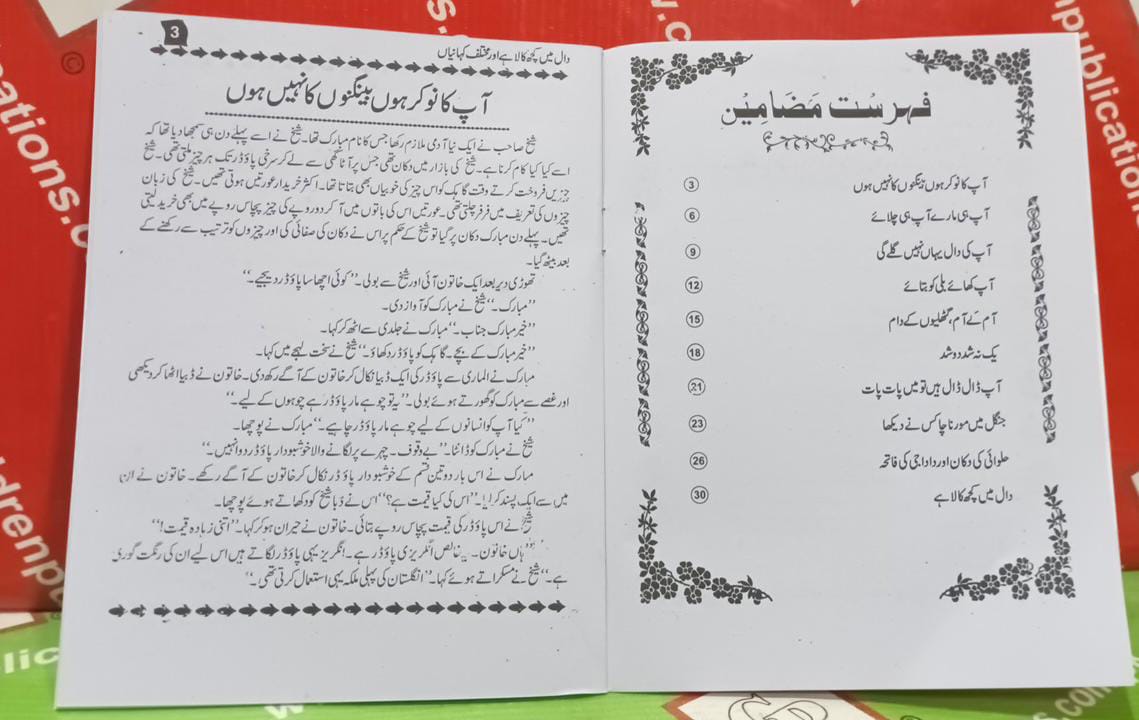 فہرست مَضَامِین
آپ کا نوکر ہوں بینگنوں کا نہیں ہوں 3
آپ ہی مارے آپ ہی چلائے 6
آپ کی دال یہاں نہیں گلے گی 9
آپ کھائے بلی کو بتائے 12
آم کے آم، گٹھلیوں کے دام 15
یک نہ شد دو شد 18
آپ ڈال ڈال ہیں تو میں پات پات 21
جنگل میں مور ناچا کس نے دیکھا 23
حلوائی کی دکان اور دادا جی کی فاتحہ 26
دال میں کچھ کالا ہے 30
3
دال میں کچھ کالا ہے اور مختلف کہانیاں
آپ کا نوکر ہوں بینگنوں کا نہیں ہوں
شیخ صاحب نے ایک نیا آدمی ملازم رکھا جس کا نام مبارک تھا۔ شیخ نے اسے پہلے دن ہی سمجھا دیا تھا کہ
اسے کیا کیا کام کرنا ہے۔ شیخ کی بازار میں دکان تھی جس پر آٹا گھی سے لے کر سرخی پاؤڈر تک ہر چیز ملتی تھی۔ شیخ
چیزیں فروخت کرتے وقت گاہک کو اس چیز کی خوبیاں بھی بتاتا تھا۔ اکثر خریدار عورتیں ہوتی تھیں۔ شیخ کی زبان
چیزوں کی تعریف میں فرفر چلتی تھی۔ عورتیں اس کی باتوں میں آ کر دو روپے کی چیز پچاس روپے میں بھی خرید لیتی
تھیں۔ پہلے دن مبارک دکان پر گیا تو شیخ کے حکم پر اس نے دکان کی صفائی کی اور چیزوں کو ترتیب سے رکھنے کے
بعد بیٹھ گیا۔
تھوڑی دیر بعد ایک خاتون آئی اور شیخ سے بولی۔ ”کوئی اچھا سا پاؤڈر دیجیے۔“
”مبارک۔“ شیخ نے مبارک کو آواز دی۔
”خیر مبارک جناب۔“ مبارک نے جلدی سے اٹھ کر کہا۔
”خیر مبارک کے بچے۔ گاہک کو پاؤڈر دکھاؤ۔“ شیخ نے سخت لہجے میں کہا۔
مبارک نے الماری سے پاؤڈر کی ایک ڈبیا نکال کر خاتون کے آگے رکھ دی۔ خاتون نے ڈبیا اٹھا کر دیکھی
اور غصے سے مبارک کو گھورتے ہوئے بولی۔ ”یہ تو چوہے مار پاؤڈر ہے چوہوں کے لیے۔“
”کیا آپ کو انسانوں کے لیے چوہے مار پاؤڈر چاہیے۔“ مبارک نے پوچھا۔
شیخ نے مبارک کو ڈانٹا۔ ”بے وقوف۔ چہرے پر لگانے والا خوشبودار پاؤڈر دو انہیں۔“
مبارک نے اس بار دو تین قسم کے خوشبودار پاؤڈر نکال کر خاتون کے آگے رکھے۔ خاتون نے ان
میں سے ایک پسند کر لیا۔ ”اس کی کیا قیمت ہے؟“ اس نے ڈبا شیخ کو دکھاتے ہوئے پوچھا۔
شیخ نے اس پاؤڈر کی قیمت پچاس روپے بتائی۔ خاتون نے حیران ہو کر کہا۔ ”اتنی زیادہ قیمت!“
”ہاں خاتون۔ یہ خالص انگریزی پاؤڈر ہے۔ انگریز یہی پاؤڈر لگاتے ہیں اس لیے ان کی رنگت گوری
ہے۔“ شیخ نے مسکراتے ہوئے کہا۔ ”انگلستان کی پہلی ملکہ یہی استعمال کرتی تھی۔“